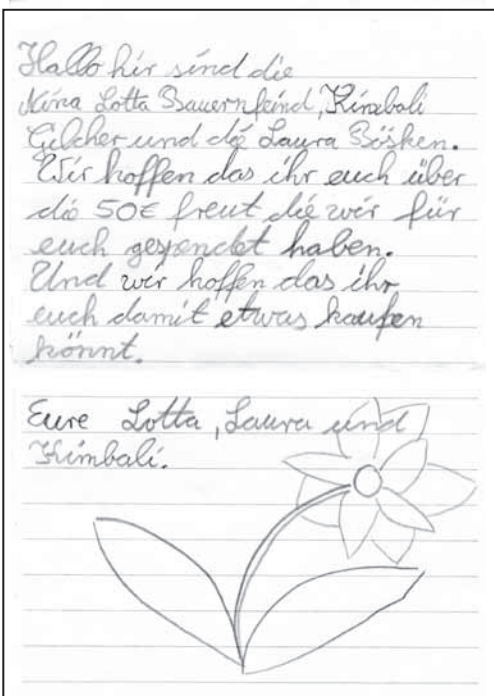 Hallo hir sind die
Nina Lotta Bauernfeind, Kimbali
Gilcher und die Laura Bösken.
Wir hoffen das ihr euch über
die 50€ freut die wir für
euch gespendet haben.
Und wir hoffen das ihr
euch damit etwas kaufen
könnt.
Eure Lotta, Laura und
Kimbali.